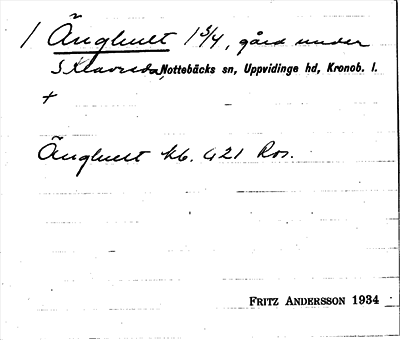 1 Änghult 1 3/4, gård under
S Klavreda, Nottebäcks sn, Uppvidinge hd, Kronob. l.
+
Änghult kb. 421 Ros.
FRITZ ANDERSSON 1934